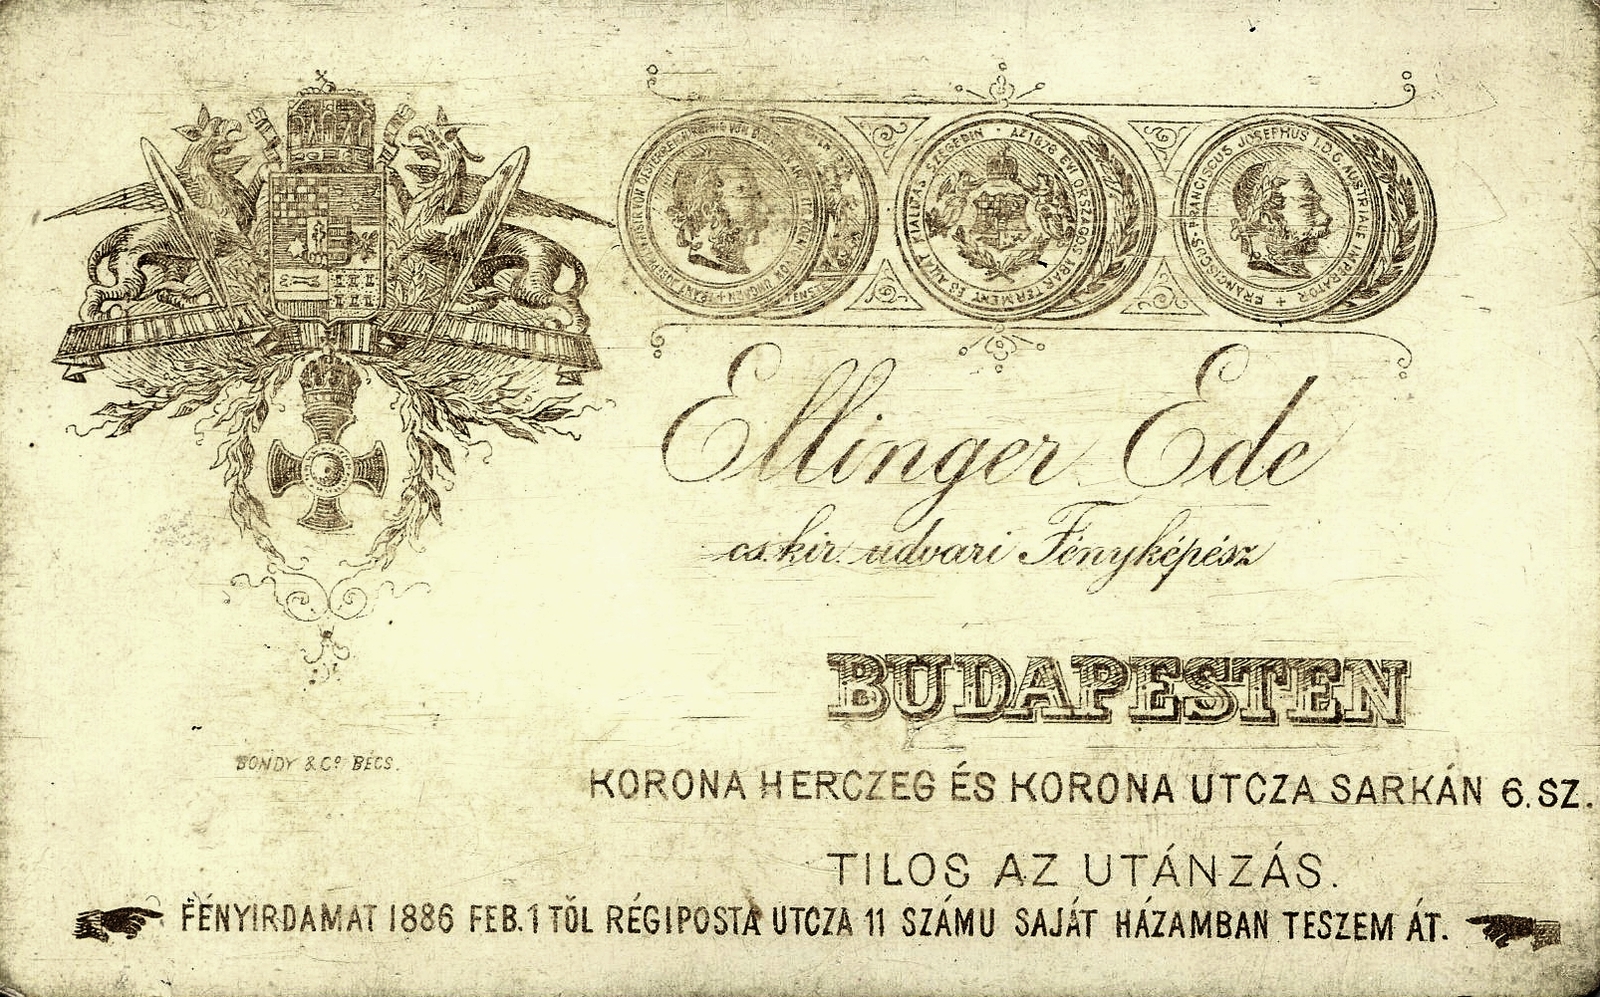 FRANCISCUS JOSEPHUS I.D.G. AUSTRIAE IMPERATOR + FRANCISCUS
SZEGEDEN · AZ 1876 ÉVI ORSZÁGOS
Ellinger Ede
cs. kir. udvari Fényképész
BUDAPESTEN
KORONA HERCZEG ÉS KORONA UTCZA SARKÁN 6. SZ.
BONDY & Co. BÉCS.
TILOS AZ UTÁNZÁS.
FÉNYIRDAMAT 1886 FEB. 1 TŐL RÉGIPOSTA UTCZA 11 SZÁMU SAJÁT HÁZAMBAN TESZEM ÁT.